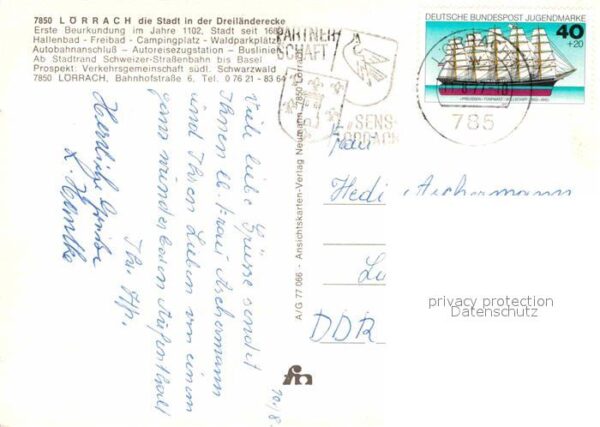 7850 LÖRRACH die Stadt in der Dreiländerecke
Erste Beurkundung im Jahre 1102, Stadt seit 1682
Hallenbad - Freibad - Campingplatz - Waldparkplätze
Autobahnanschluß - Autoreisezugstation - Buslinien
Ab Stadtrand Schweizer-Straßenbahn bis Basel
Prospekt: Verkehrsgemeinschaft südl. Schwarzwald
7850 LÖRRACH, Bahnhofstraße 6, Tel. 0 76 21 - 83 64
PARTNER
SCHAFT
SENS
LÖRRACH
785
DEUTSCHE BUNDESPOST JUGENDMARKE
40
+20
A/G 77 066 - Ansichtskarten-Verlag Neumann, 7850 Lörrach
10/8.
Viele liebe Grüsse sendet
Ihnen lb. Frau Aschermann
und Ihren Lieben von einem
ganz wunderbaren Aufenthalt
Ihr
Herzliche Grüße
Frau
Hedi Aschermann
DDR
privacy protection
Datenschutz